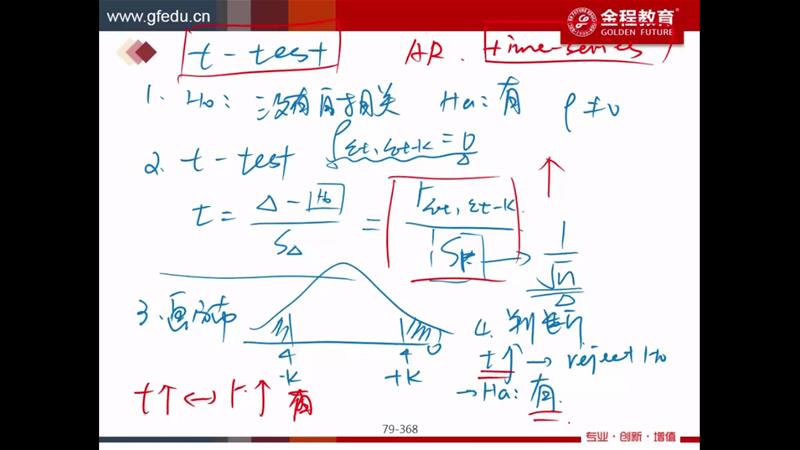 www.gfedu.cn
金程教育
GOLDEN FUTURE
t-test AR. time-series
1. Ho: 没有自相关 Ha: 有 ρ≠0
2. t-test ρεt, εt-k = 0
t = Δ - Ho / SΔ = rεt, εt-k / Sr → 1/√n
3. 画分布
4. 判断
-k +k
t↑ → reject Ho
→ Ha: 有
t↑ ↔ r↑ 有
79-368
专业·创新·增值